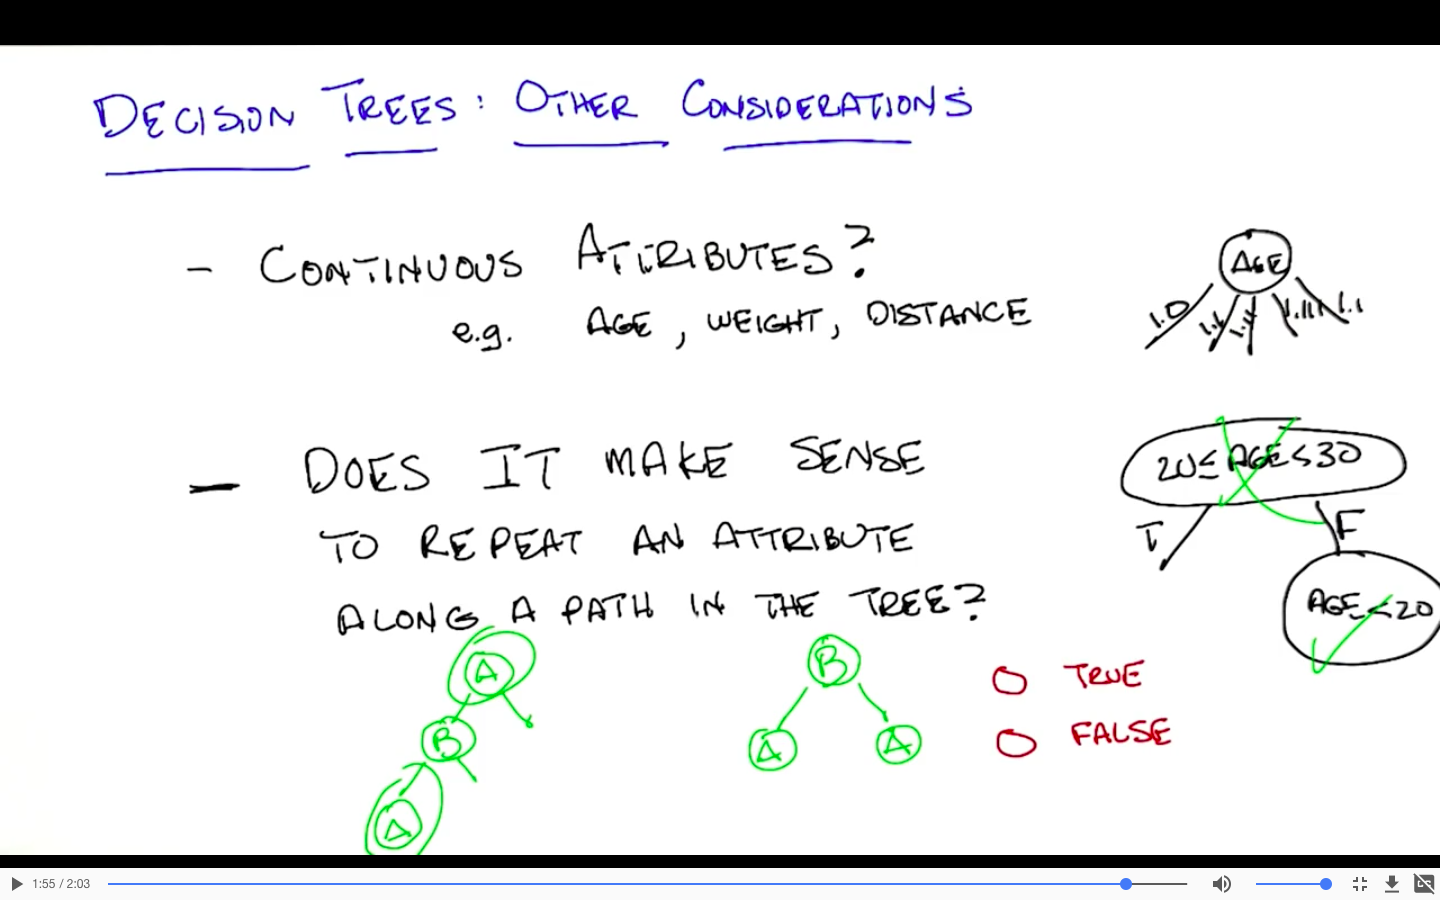 DECISION TREES: OTHER CONSIDERATIONS
- CONTINUOUS ATTRIBUTES?
e.g. AGE, WEIGHT, DISTANCE
AGE
1.0 1.1 1.11 1.111 1.1
- DOES IT MAKE SENSE
TO REPEAT AN ATTRIBUTE
ALONG A PATH IN THE TREE?
20≤ AGE <30
T F
AGE <20
A
B
A
B
A A
TRUE
FALSE
1:55 / 2:03